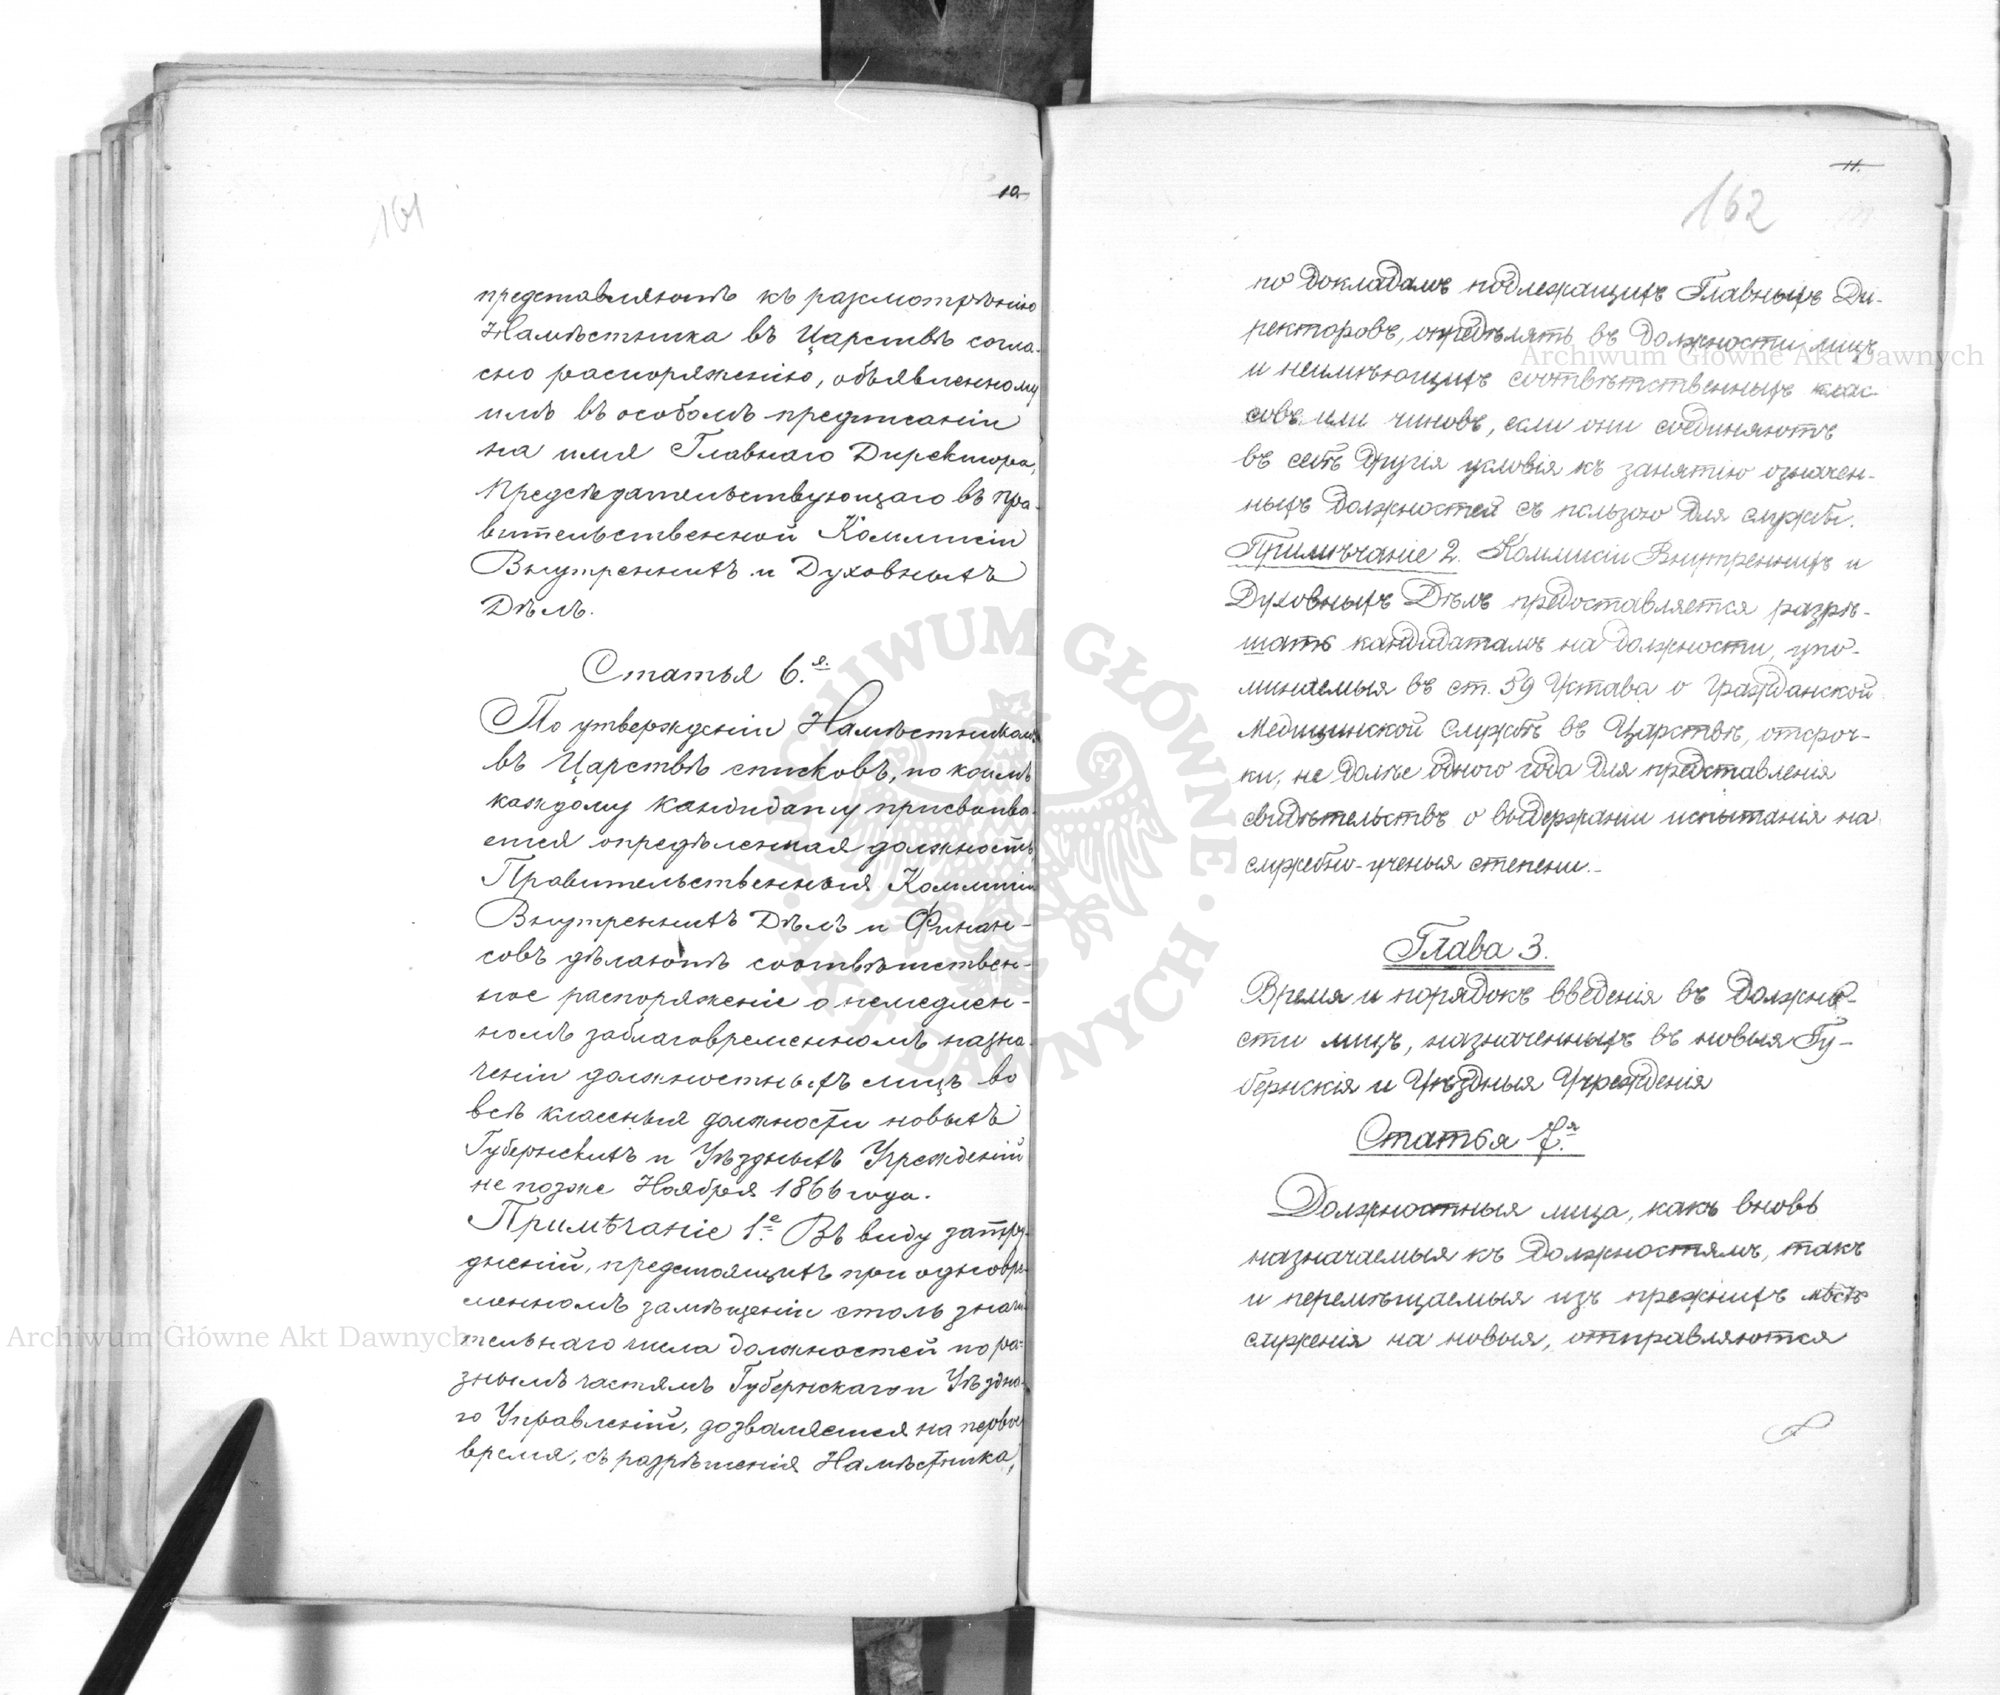 10
161
представляютъ къ разсмотрѣнію
Намѣстника въ Царствѣ согла-
сно распоряженію, объявленному
имъ въ особомъ предписаніи
на имя Главнаго Директора,
Предсѣдательствующаго въ Пра-
вительственной Коммисіи
Внутреннихъ и Духовныхъ
Дѣлъ.
Статья 6.я
По утвержденіи Намѣстникомъ
въ Царствѣ списковъ, по коимъ
каждому кандидату присвоива-
ется опредѣленная должность,
Правительственныя Коммисіи
Внутреннихъ Дѣлъ и Финан-
совъ дѣлаютъ соотвѣтствен-
ное распоряженіе о немедлен-
номъ заблаговременномъ назна-
ченіи должностныхъ лицъ во
всѣ классныя должности новыхъ
Губернскихъ и Уѣздныхъ Учрежденій
не позже Ноября 1866 года.
Примѣчаніе 1.е Въ виду затру-
дненій, предстоящихъ при одновре-
менномъ замѣщеніи столь значи-
тельнаго числа должностей по ра-
знымъ частямъ Губернскаго и Уѣздна-
го Управленій, дозволяется на первое
время, съ разрѣшенія Намѣстника,
11.
162
по докладамъ подлежащихъ Главныхъ Ди-
ректоровъ, опредѣлять въ должности лицъ
и неимѣющихъ соотвѣтственныхъ клас-
совъ или чиновъ, если они соединяютъ
въ себѣ другія условія къ занятію означен-
ныхъ должностей съ пользою для службы.
Примѣчаніе 2. Коммисіи Внутреннихъ и
Духовныхъ Дѣлъ предоставляется разрѣ-
шать кандидатамъ на должности, упо-
минаемыя въ ст. 59 Устава о Гражданской
Медицинской службѣ въ Царствѣ, отсроч-
ки, не долѣе одного года для представленія
свидѣтельствъ о выдержаніи испытанія на
служебно-ученыя степени.-
Глава 3.
Время и порядокъ введенія въ должно-
сти лицъ, назначенныхъ въ новыя Гу-
бернскія и Уѣздныя Учрежденія
Статья 7.я
Должностныя лица, какъ вновь
назначаемыя къ должностямъ, такъ
и перемѣщаемыя изъ прежнихъ мѣстъ
служенія на новыя, отправляются
Archiwum Główne Akt Dawnych
Archiwum Główne Akt Dawnych
ARCHIWUM GŁÓWNE · AKT DAWNYCH ·